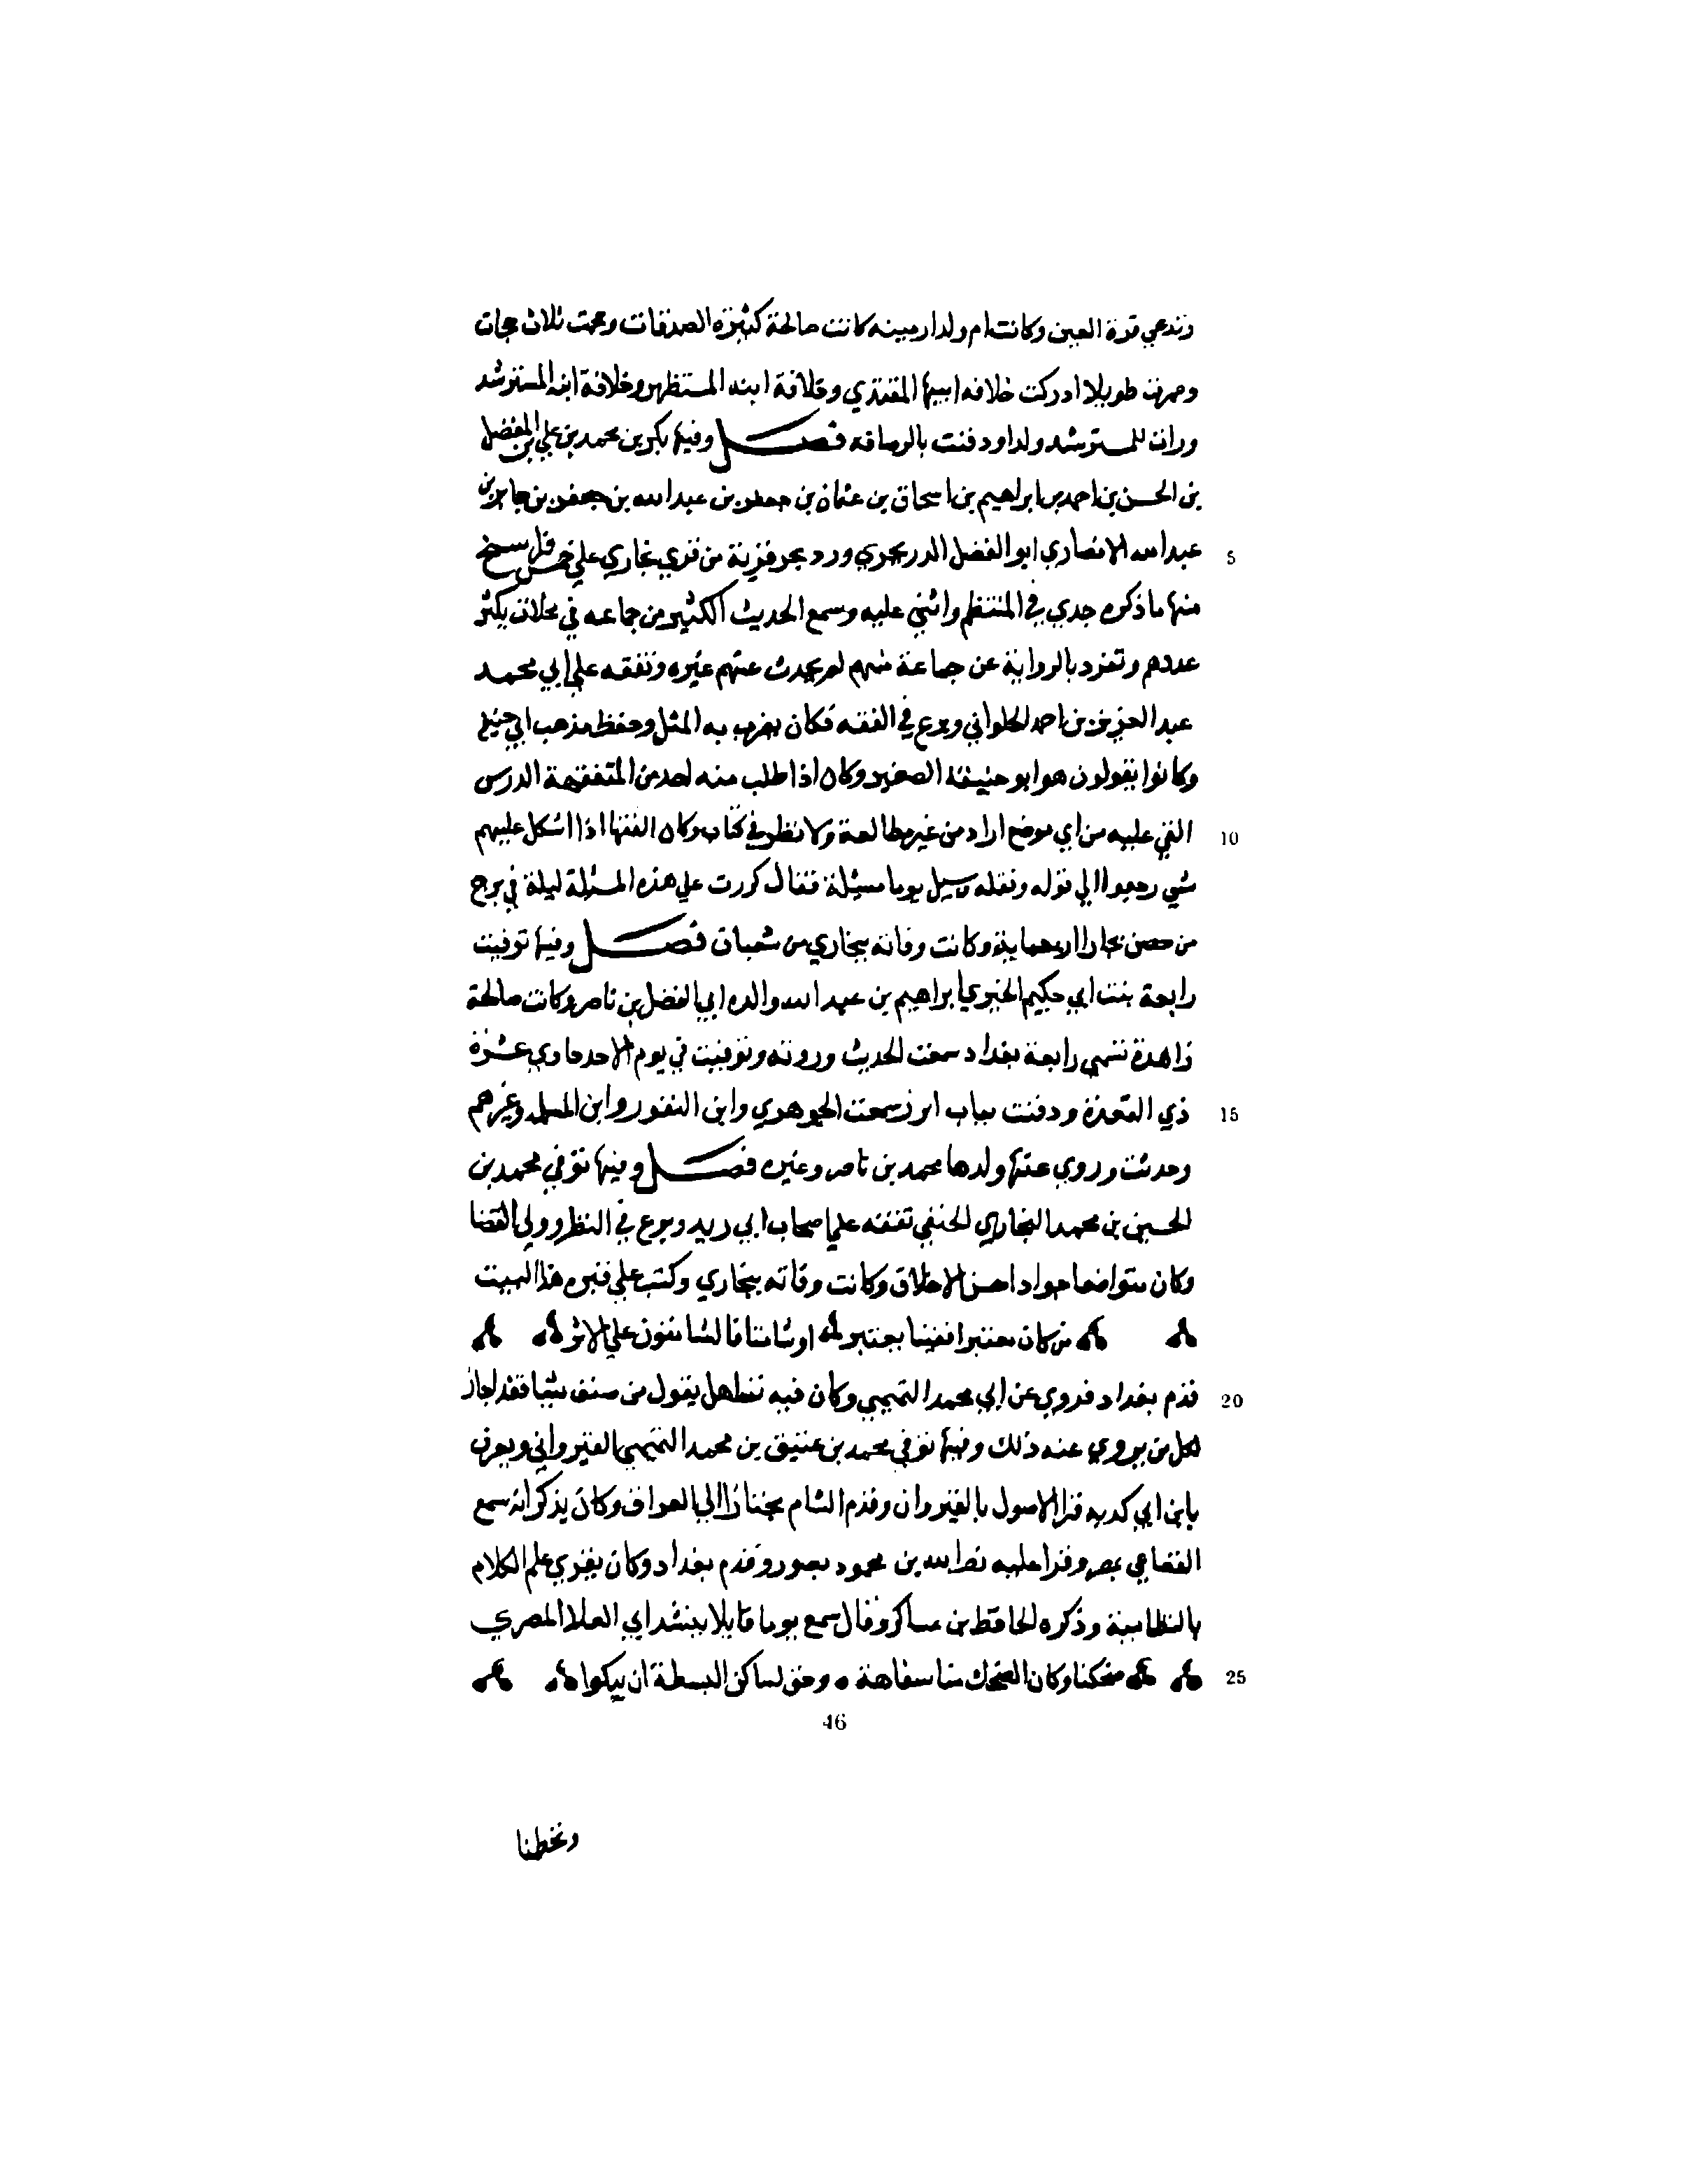 وتدعي قرة العين وكانت ام ولد ارمينيه كانت صالحة كثيرة الصدقات وحجت ثلاث حجات
وعمرت طويلا ادركت خلافه ابيها المقتدي وخلافة ابنه المستظهر وخلافة ابنه المسترشد
ورات للمسترشد ولدا ودفنت بالرصافه فصل وفيها بكر بن محمد بن علي بن المفضل
بن الحسن بن احمد بن ابراهيم بن اسحاق بن عثمان بن جعفر بن عبد الله بن جعفر بن جابر بن
5 عبد الله الانصاري ابو الفضل الدر بجري ورد بجر قرية من قري بخاري علي خمس فراسخ
منها ما ذكره جدي في المنتظم واثني عليه وسمع الحديث الكثير من جماعه في محلات يكثر
عددهم وتفرد بالرواية عن جماعة منهم لم يحدث عنهم غيره وتفقه علي ابي محمد
عبد العزيز بن احمد الحلواني وبرع في الفقه فكان يضرب به المثل وحفظ مذهب ابي حنيفه
وكانوا يقولون هو ابو حنيفة الصغير وكان اذا طلب منه احد من المتفقهة الدرس
10 القي عليه من اي موضع اراد من غير مطالعة ولا نظر في كتاب وكان الفقها اذا اشكل عليهم
شي رجعوا الي قوله ونقله وسيل يوما مسيلة فقال كررت علي هذه المسئلة ليلة في برج
من حصن بخارا اربعماية وكانت وفاته ببخاري من شعبان فصل وفيها توفيت
رابعة بنت ابي حكيم الخبري ابراهيم بن عبد الله والده ابي الفضل بن ناصر وكانت صالحة
زاهدة تسمي رابعة بغداد سمعت الحديث وروته وتوفيت في يوم الاحد حادي عشرة
15 ذي القعدة ودفنت بباب ابرز سمعت الجوهري وابن النقور وابن المسلمه وغيرهم
وحدثت وروي عنها ولدها محمد بن ناصر وغيره فصل وفيها توفي محمد بن
الحسين بن محمد البخاري الحنفي تفقه علي اصحاب ابي زيد وبرع في النظر وولي القضا
وكان متواضعا جوادا حسن الاخلاق وكانت وفاته ببخاري وكتب علي قبره هذا البيت
من كان معتبرا ففينا معتبر او شامتا فالشامتون علي الاثر
20 قدم بغداد فروي عن ابي محمد التميمي وكان فيه تساهل يقول من صنف شيا فقد اجاز
لكل من يروي عنه ذلك وفيها توفي محمد بن عتيق بن محمد التميمي القيرواني ويعرف
بابن ابي كديه قرا الاصول بالقيروان وقدم الشام مجتازا الي العراق وكان يذكر انه سمع
القضاعي بمصر وقرا عليه نصر الله بن محمود بصور وقدم بغداد وكان يقري علم الكلام
بالنظامية وذكره الحافظ بن عساكر وقال سمع يوما قايلا ينشد ابي العلا المصري
25 ضحكنا وكان الضحك منا سفاهة وحق لساكن البسطة ان يبكوا
46
وتحطمنا